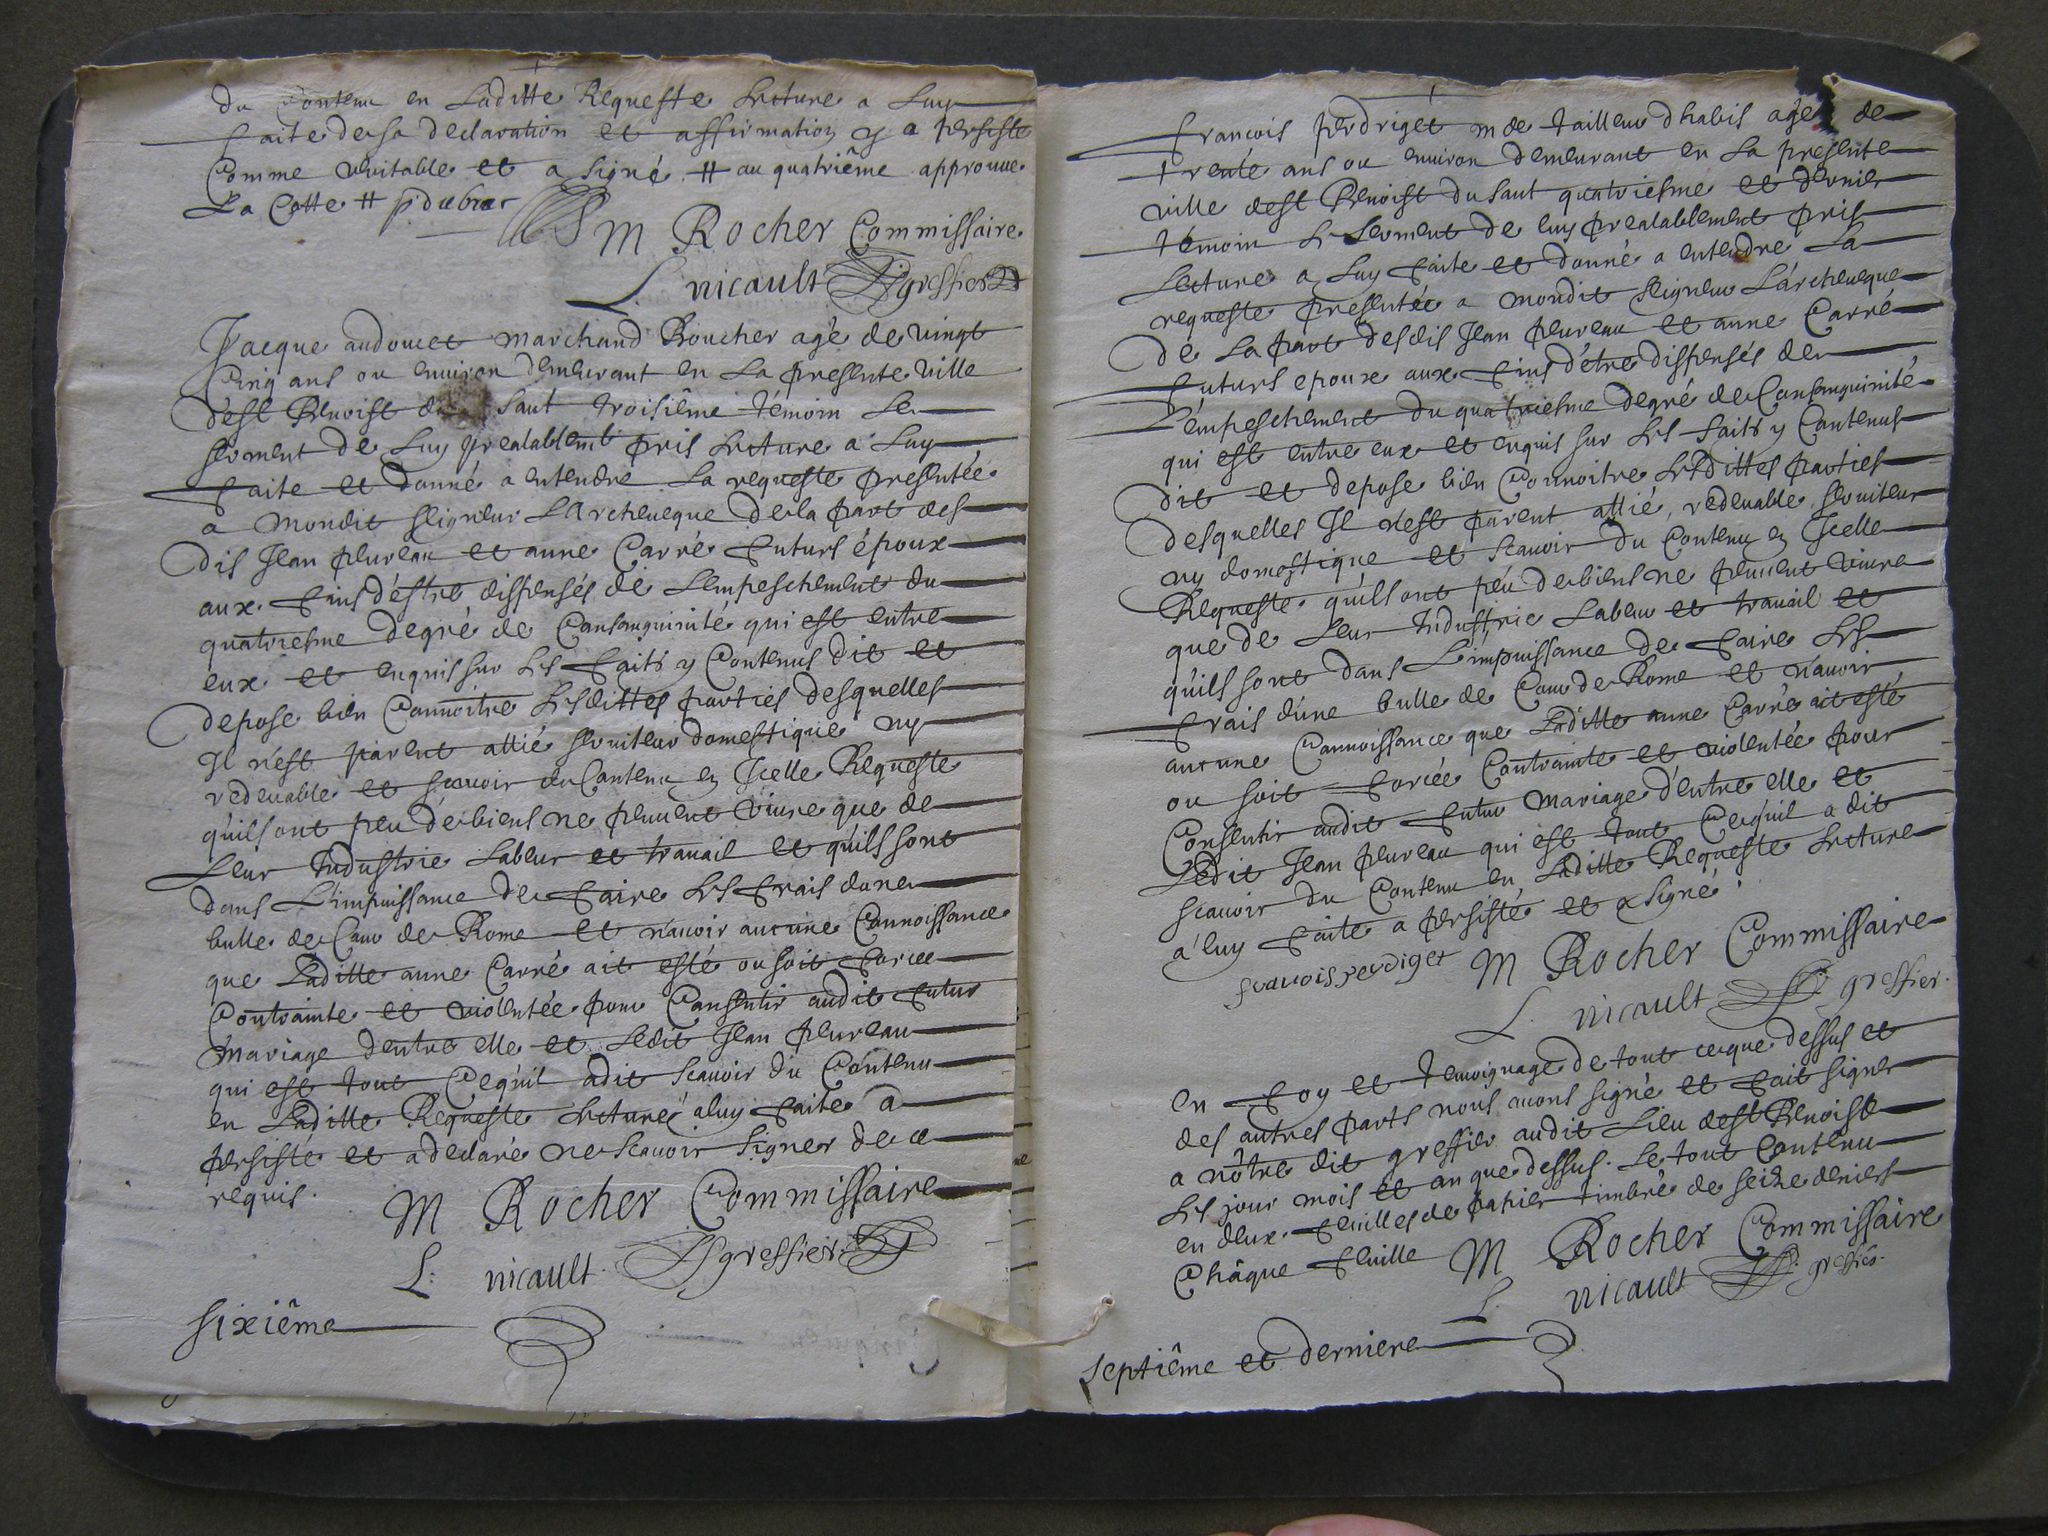 du Contenu en Laditte Requeste Lecture a Luy
faite de sa declaration et affirmation y a persisté
Comme veritable et a signé # au quatriême approuue
La Cotte #
M Rocher Commissaire
L. nicault greffier
Jacque audoucet marchand Boucher agé de vingt
Cinq ans ou environ demeurant en La presente ville
dest Benoist du Saut troisiême témoin Le
serment de Luy prealablemt pris Lecture a Luy
faite et donné a entendre La requeste presentée
a Mondit seigneur LArcheueque de la part des
dis Jean pleureau et anne Carré futurs époux
aux fins d'éstre dispensés de L'empeschement du
quatriesme degré de Consanguinité qui est entre
eux et enquis sur les faits y Contenus dit et
depose bien Connoitre Lesdittes parties desquelles
Il n'est parent allié seruiteur domestique ny
redeuable et scauoir du Contenu en Jcelle Requeste
quils ont peu de biens ne peuuent viure que de
Leur Industrie Labeur et trauail et quils sont
dans L'impuissance de faire les frais dune
bulle de Cour de Rome et n'auoir aucune Connoissance
que Laditte anne Carré ait esté ou soit forcée
Contrainte et violentée pour Consentir audit futur
mariage dentre elle et Ledit Jean pleureau
qui est tout Cequil adit scauoir du Contenu
en Laditte Requeste Lecture aluy faite a
persisté et a declaré ne scauoir signer de ce
requis.
M Rocher Commissaire
L: nicault greffier
sixiême
francois perdriget m de tailleur dhabis agé de
trente ans ou environ demeurant en La presente
ville dest Benoist du Saut quatriesme et dernier
témoin Le serment de luy prealablement pris
Lecture a Luy faite et donné a entendre La
requeste presentée a mondit seigneur L'árcheueque
de La part desdis Jean pleureau et anne Carré
futurs epoux aux fins d'étre dispensés de
L'émpeschement du quatriesme degré de Consanguinité
qui est entre eux et enquis sur les faits y Contenus
dit et depose bien Connoitre Lesdittes parties
desquelles Jl n'est parent allié, redeuable, seruiteur
ny domestique et scauoir du Contenu en Jcelle
Requeste quils ont peu de biens ne peuuent viure
que de Leur Industrie Labeur et trauail et
quils sont dans L'impuissance de faire les
frais d'une bulle de Cour de Rome et n'auoir
aucune Connoissance que Laditte anne Carré ait esté
ou soit forcée Contrainte et violentée pour
Consentir audit futur mariage d'entre elle et
Ledit Jean pleureau qui est tout Cequil a dit
scauoir du Contenu en Laditte Requeste Lecture
a luy faite a persisté et a signé
francois perdiget M Rocher Commissaire
L. nicault greffier.
en foy et temoignage de tout ceque dessus et
des autres parts nous auons signé et fait signer
a nôtre dit greffier audit Lieu dest Benoist
Les jour mois et an que dessus. Le tout Contenu
en deux feuilles de papier timbré de seize deniers
Châque feuille M Rocher Commissaire
L. nicault greffier.
septiême et derniere